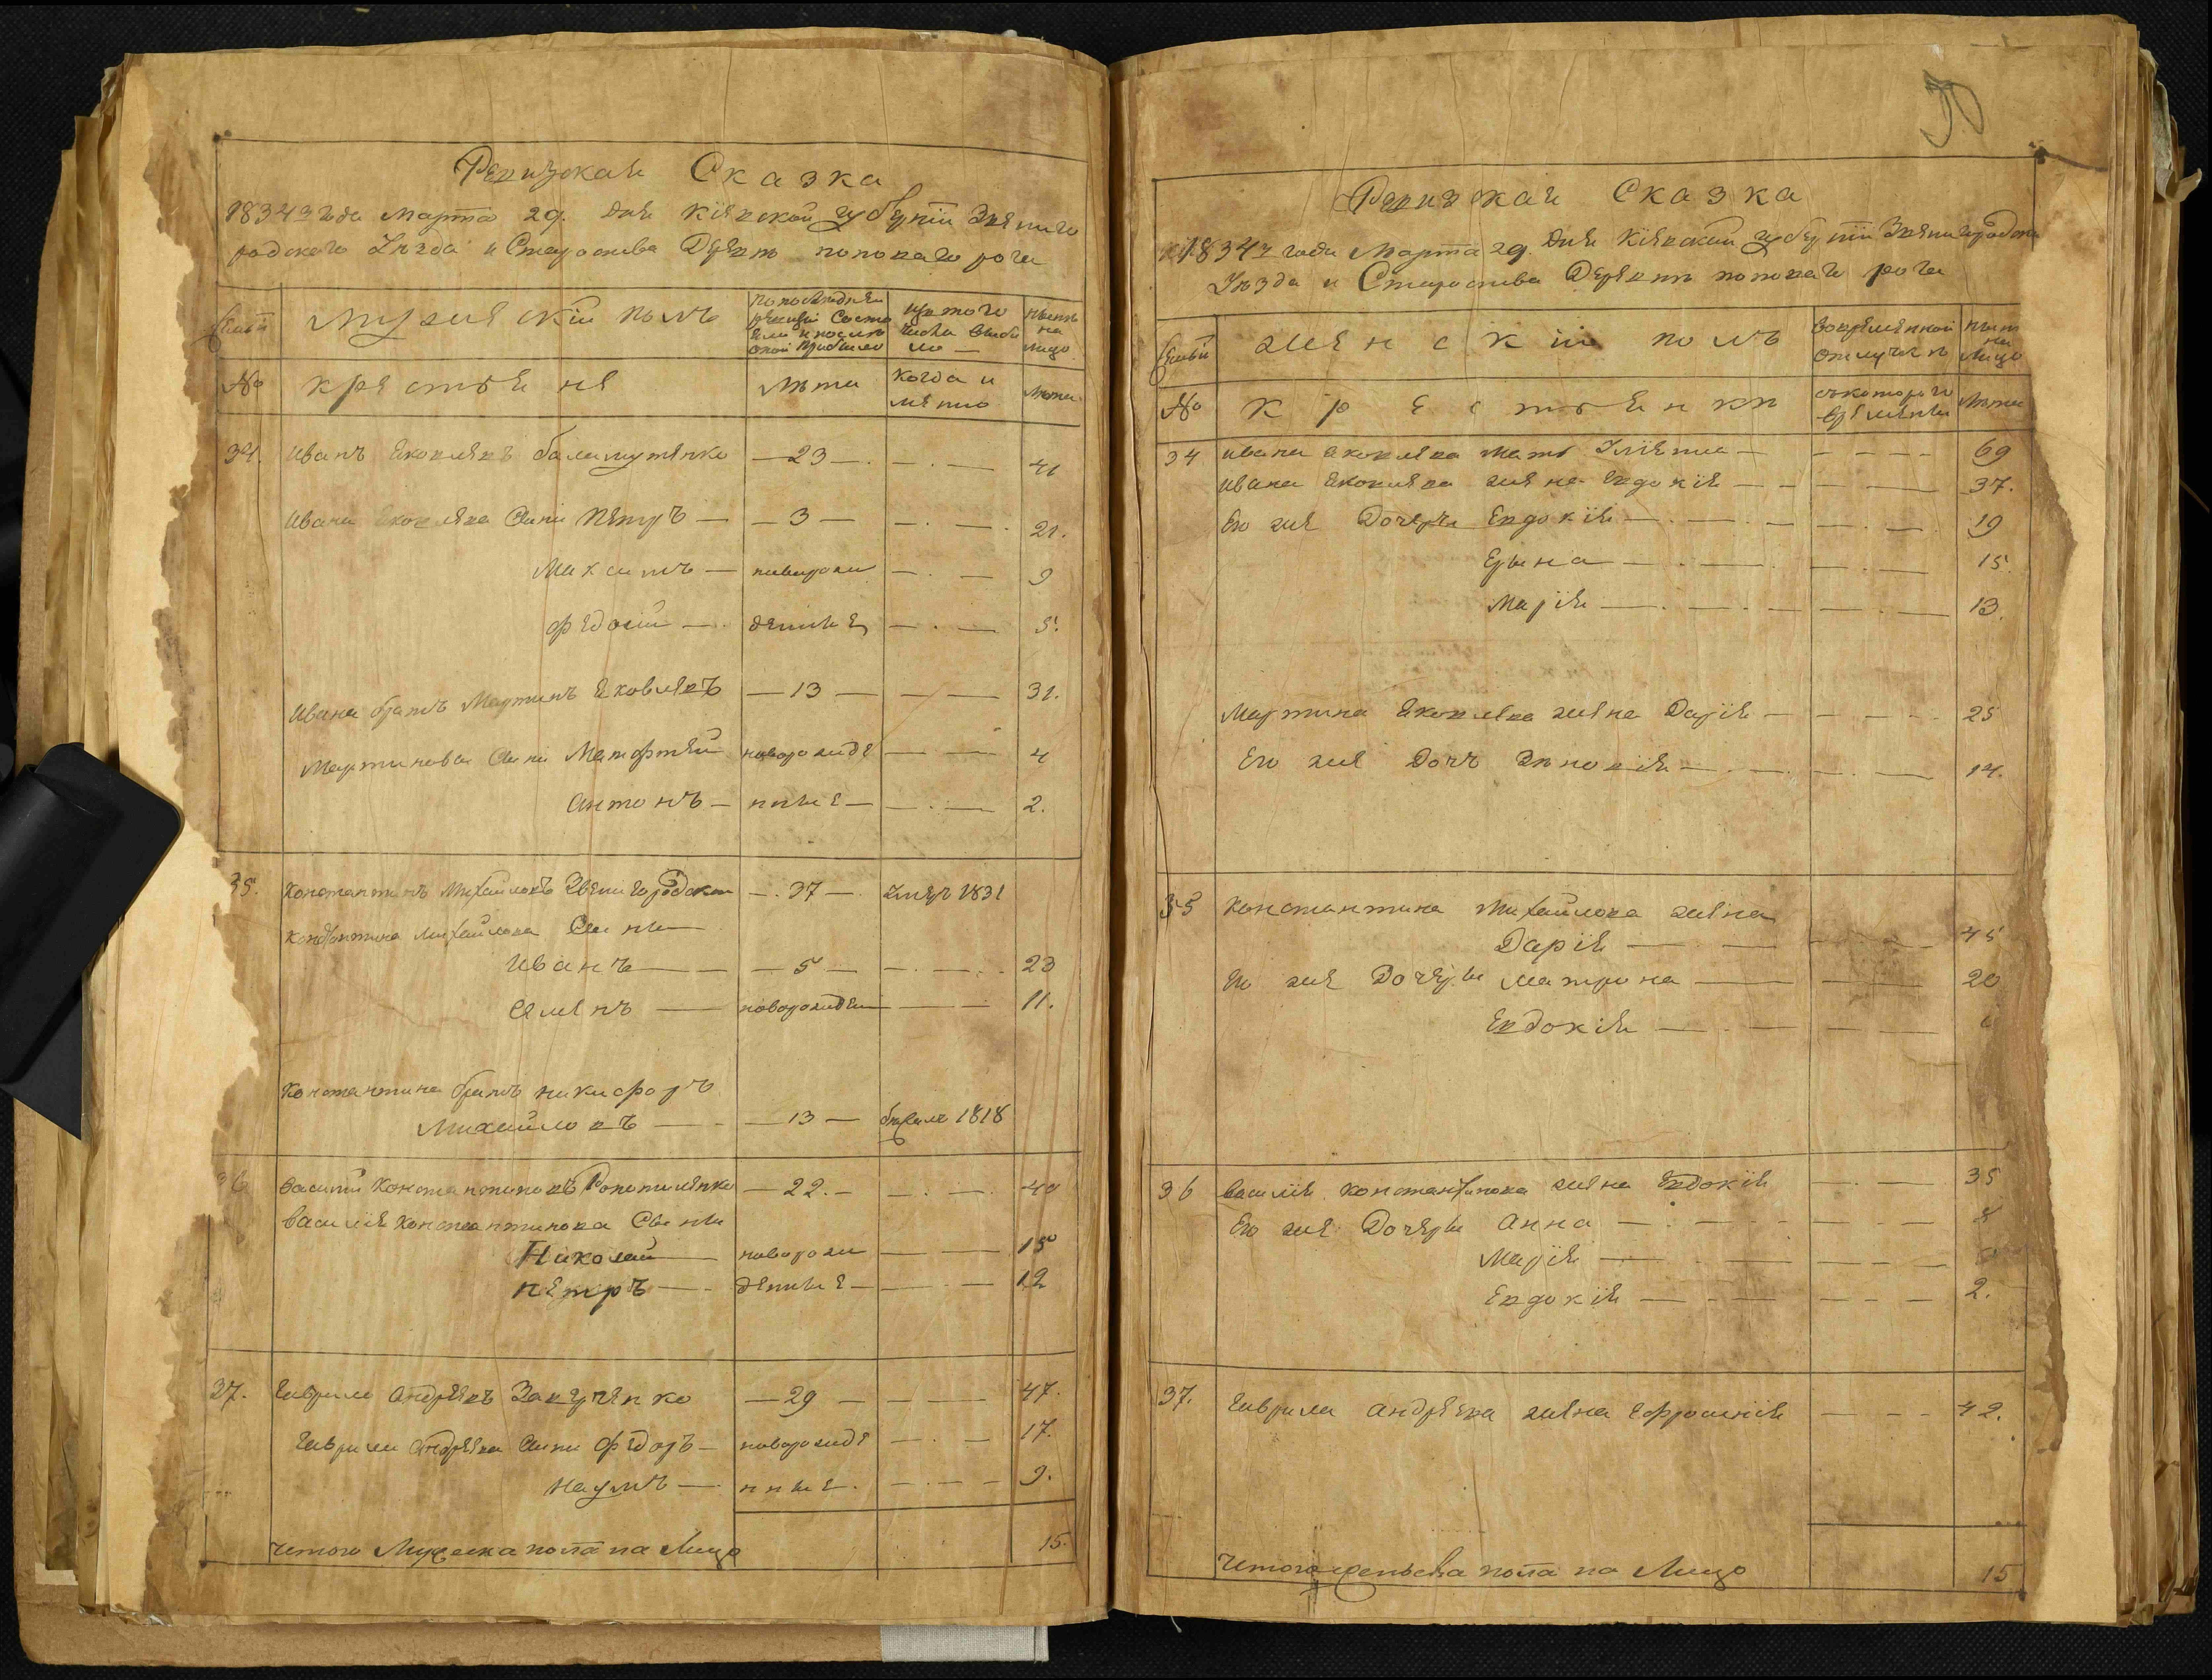 Ревизкая Сказка
1834го года марта 29. дня Кіевской губерніи Звениго
родского Уезда и Староства Деревни попокого рога
Семьи
Мужескій полъ
По последней
ревизіи состо
яло и после
оной прибыло
Изъ того
числа выбы
ло —
Ныне
на
лицо
№
крестьяне
лета
когда и
лета
34. Иванъ Яковлевъ баламутенко — 23 — . — . — 41
Ивана Яковлева Сини Петръ — — 3 — — . — . 21.
Максимъ — новорож — . — 9
Федосій — денные — . — 5.
Ивана братъ Мартинъ Яковлевъ — 13 — — — 31.
Мартинова Сини Матфтей новорожде — — 4
Антонъ — нные — — . — 2.
35. Константинъ Михайловъ Звенигородски — . 37 — . умеръ 1831
Константина Михайлова Сыны
Иванъ — — — 5 — — . — . 23
Семенъ — новорожден — — 11.
Константина братъ никифоръ
Михайловъ — — — 13 — 1818
36 Василій Константиновъ — 22. — — . — . 40
Василія Константинова Сыны
Николай новорож — — 15
Петръ — . денные — — . — 12
37. Гаврило Андреевъ — 29 — — — 47.
Гаврила Андреева Сини Федоръ — новорожде — . — 17.
Наумъ — нные . — . — 9.
Итого Мужеска пола на Лицо 15.
30
Ревизкая Сказка
1834го года Марта 29. дня Кіевской губерніи Звенигородского
Уезда и Староства Деревни попокого рога
Семьи
женскій полъ
Во временной
отлучке
Ныне
на
Лицо
№
крестьянки
съ которого
времени
Лета
34 Ивана Яковлева мать — — — — — 69
Ивана Яковлева жена Евдокія — — . — — 37.
Его же Дочери Евдокія — . — . — — . — 19
Ерина — . — . — . — 15.
Марія — . — . — — . — 13.
Мартина Яковлева жена Дарія — — — — 25
Его же Дочъ Зеновія — . — . — . — 14.
35 Константина Михайлова жена
Дарія — . — — . — . — 45
Его же Дочеры Матрона — — — 20
Евдокія — . — . — — —
36 Василія Константинова жена Евдокія — . — 35
Его же Дочеры Анна — . — — — . —
Марія — . — — — — —
Евдокія — . — — — — 2.
37. Гаврила Андреева жена Ефросинія — — — 42.
Итого женьска пола на Лицо 15